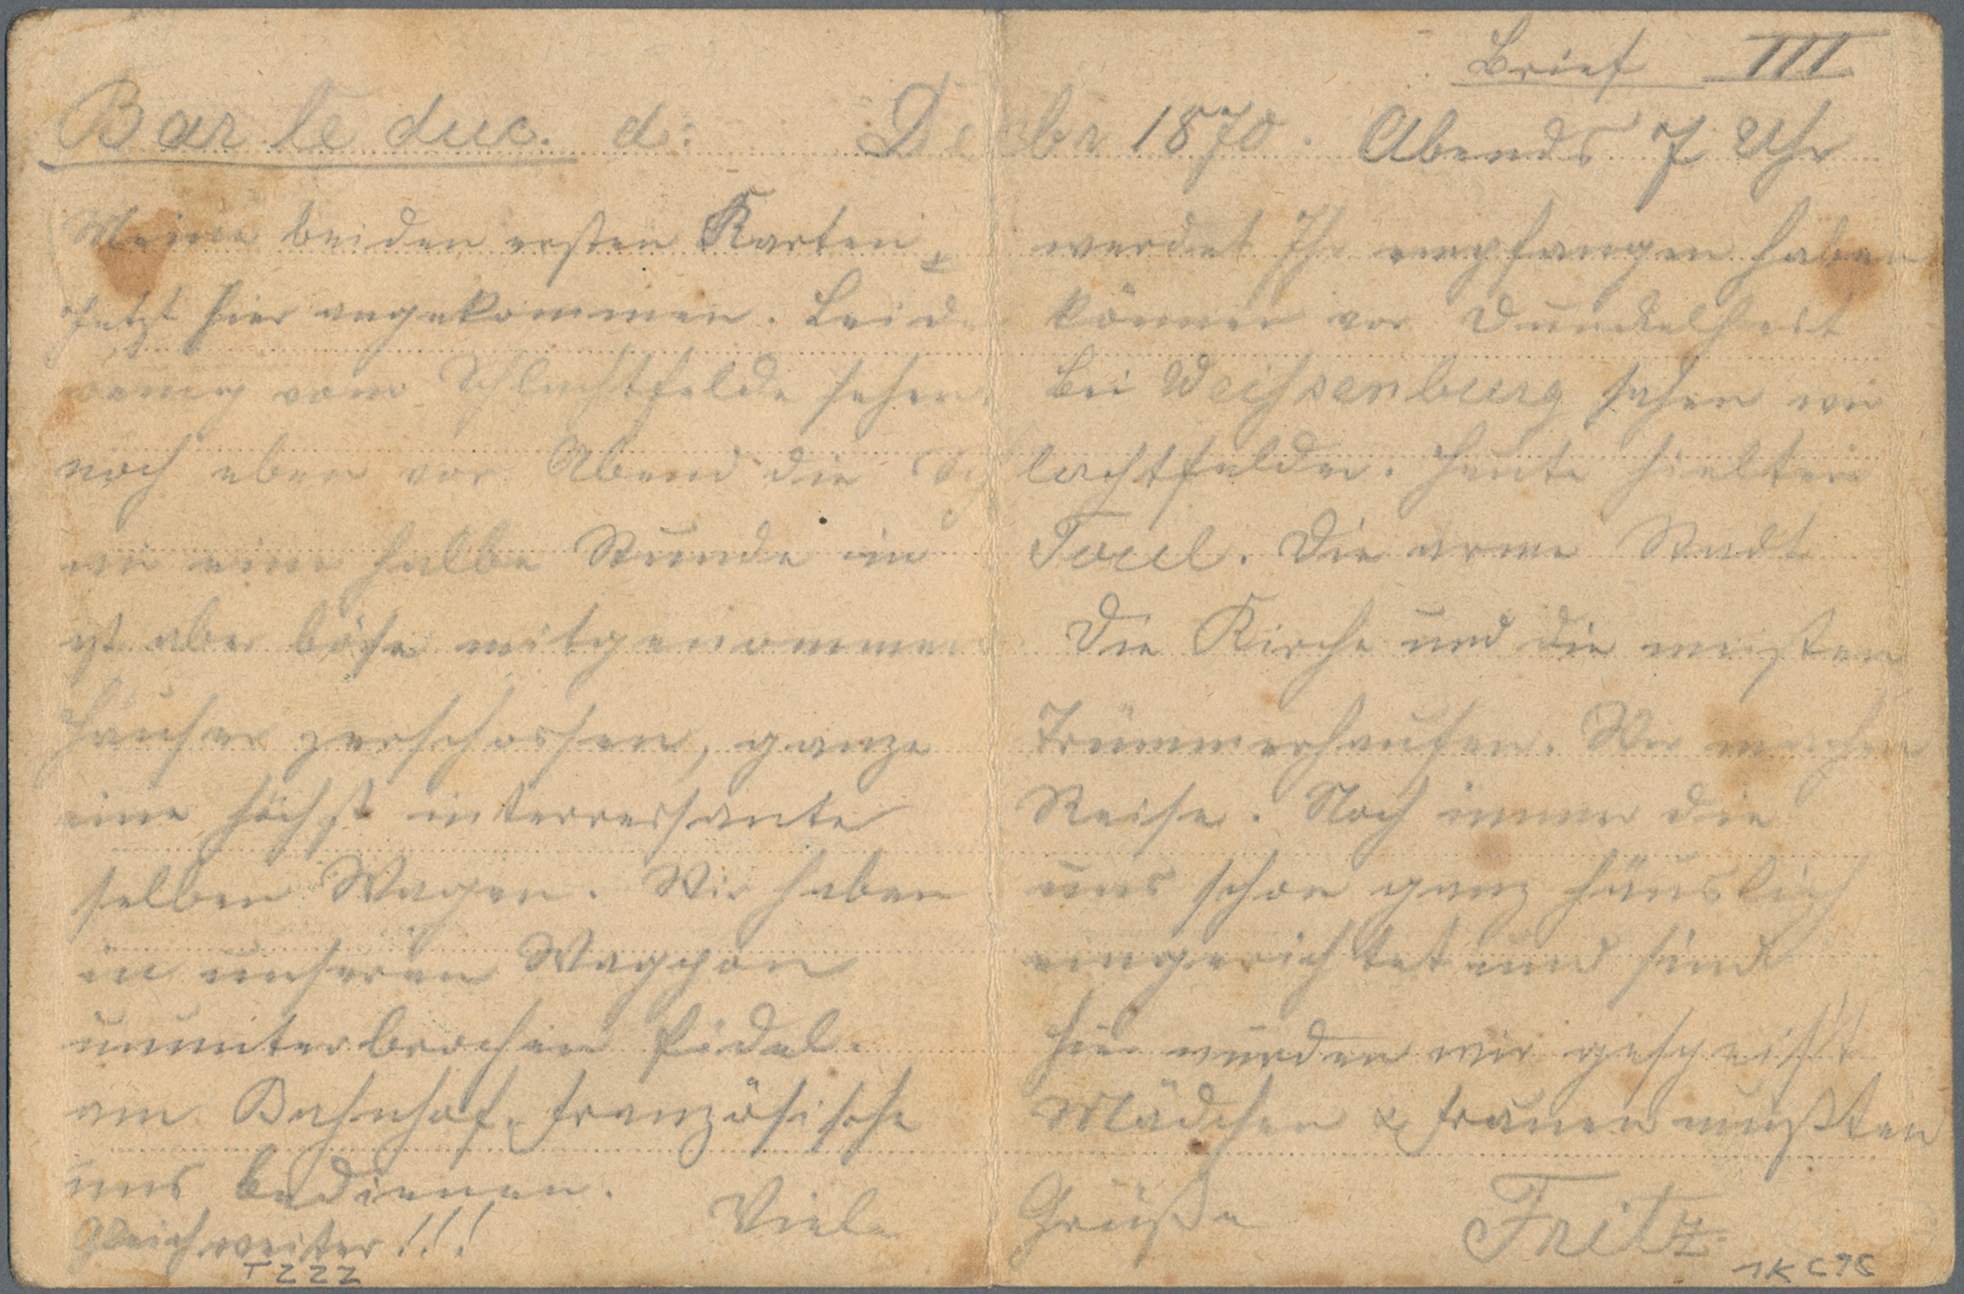 Brief III
Bar le duc. d: Dembr 1870. Abends 7 Uhr
Meine beiden ersten Karten werdet Ihr empfangen haben
Jetzt hier angekommen. Leider können vor Dunckelheit
wenig vom Schlachtfelde sehen. Bei Weihsenburg sahen wir
noch eben vor Abend die Schlachtfelder. Heute hielten
wir eine halbe Stunde in Toul. Die arme Stadt
ist aber böse mitgenommen Die Kirche und die meisten
Häuser zerschossen, ganze Trümmerhaufen. Wir machen
eine höchst interressante Reise. Noch immer die
selben Wagen. Wir haben uns schon ganz häuslich
in unseren Waggon eingerichtet und sind
ununterbrochen fidel. Hier wurden wir gespeis't
am Bahnhof, französische Mädchen & Frauen mußten
uns bedienen. Viele Grüße Fritz
Gleich weiter!!!
TZZZ